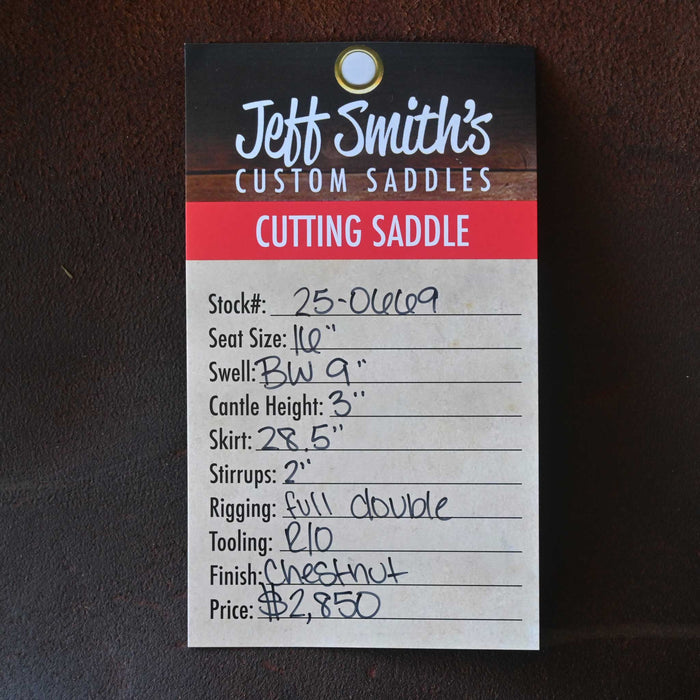 Jeff Smith's
CUSTOM SADDLES
CUTTING SADDLE
Stock#: 25-0669
Seat Size: 16"
Swell: BW 9"
Cantle Height: 3"
Skirt: 28.5"
Stirrups: 2"
Rigging: full double
Tooling: R/O
Finish: Chestnut
Price: $2,850